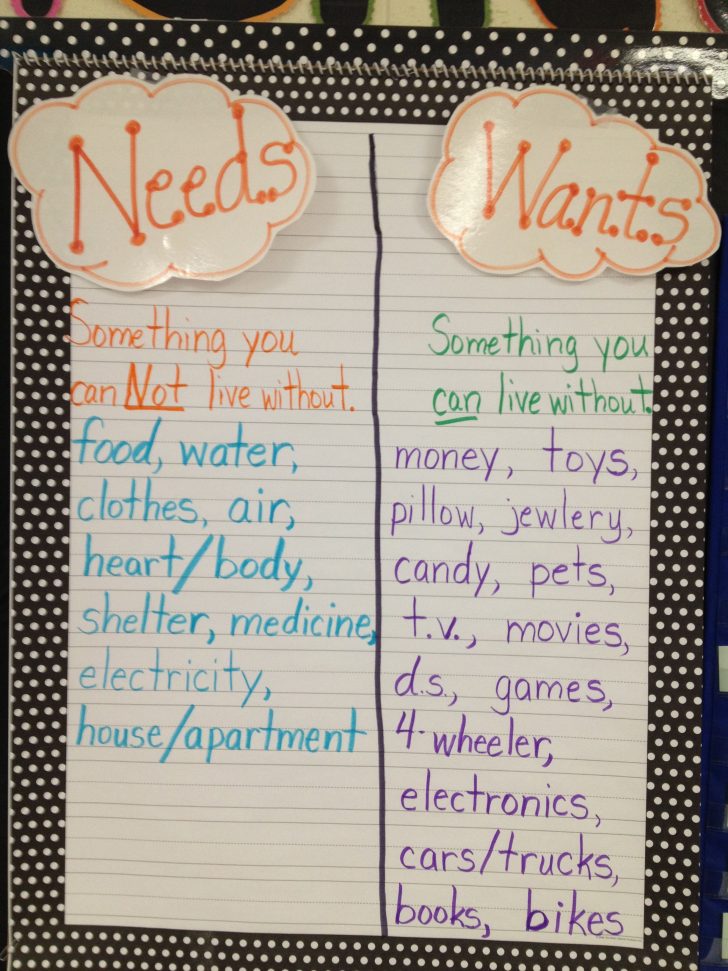 Needs
Something you
can Not live without.
food, water,
clothes, air,
heart/body,
shelter, medicine,
electricity,
house/apartment
Wants
Something you
can live without.
money, toys,
pillow, jewlery,
candy, pets,
t.v., movies,
d.s., games,
4-wheeler,
electronics,
cars/trucks,
books, bikes